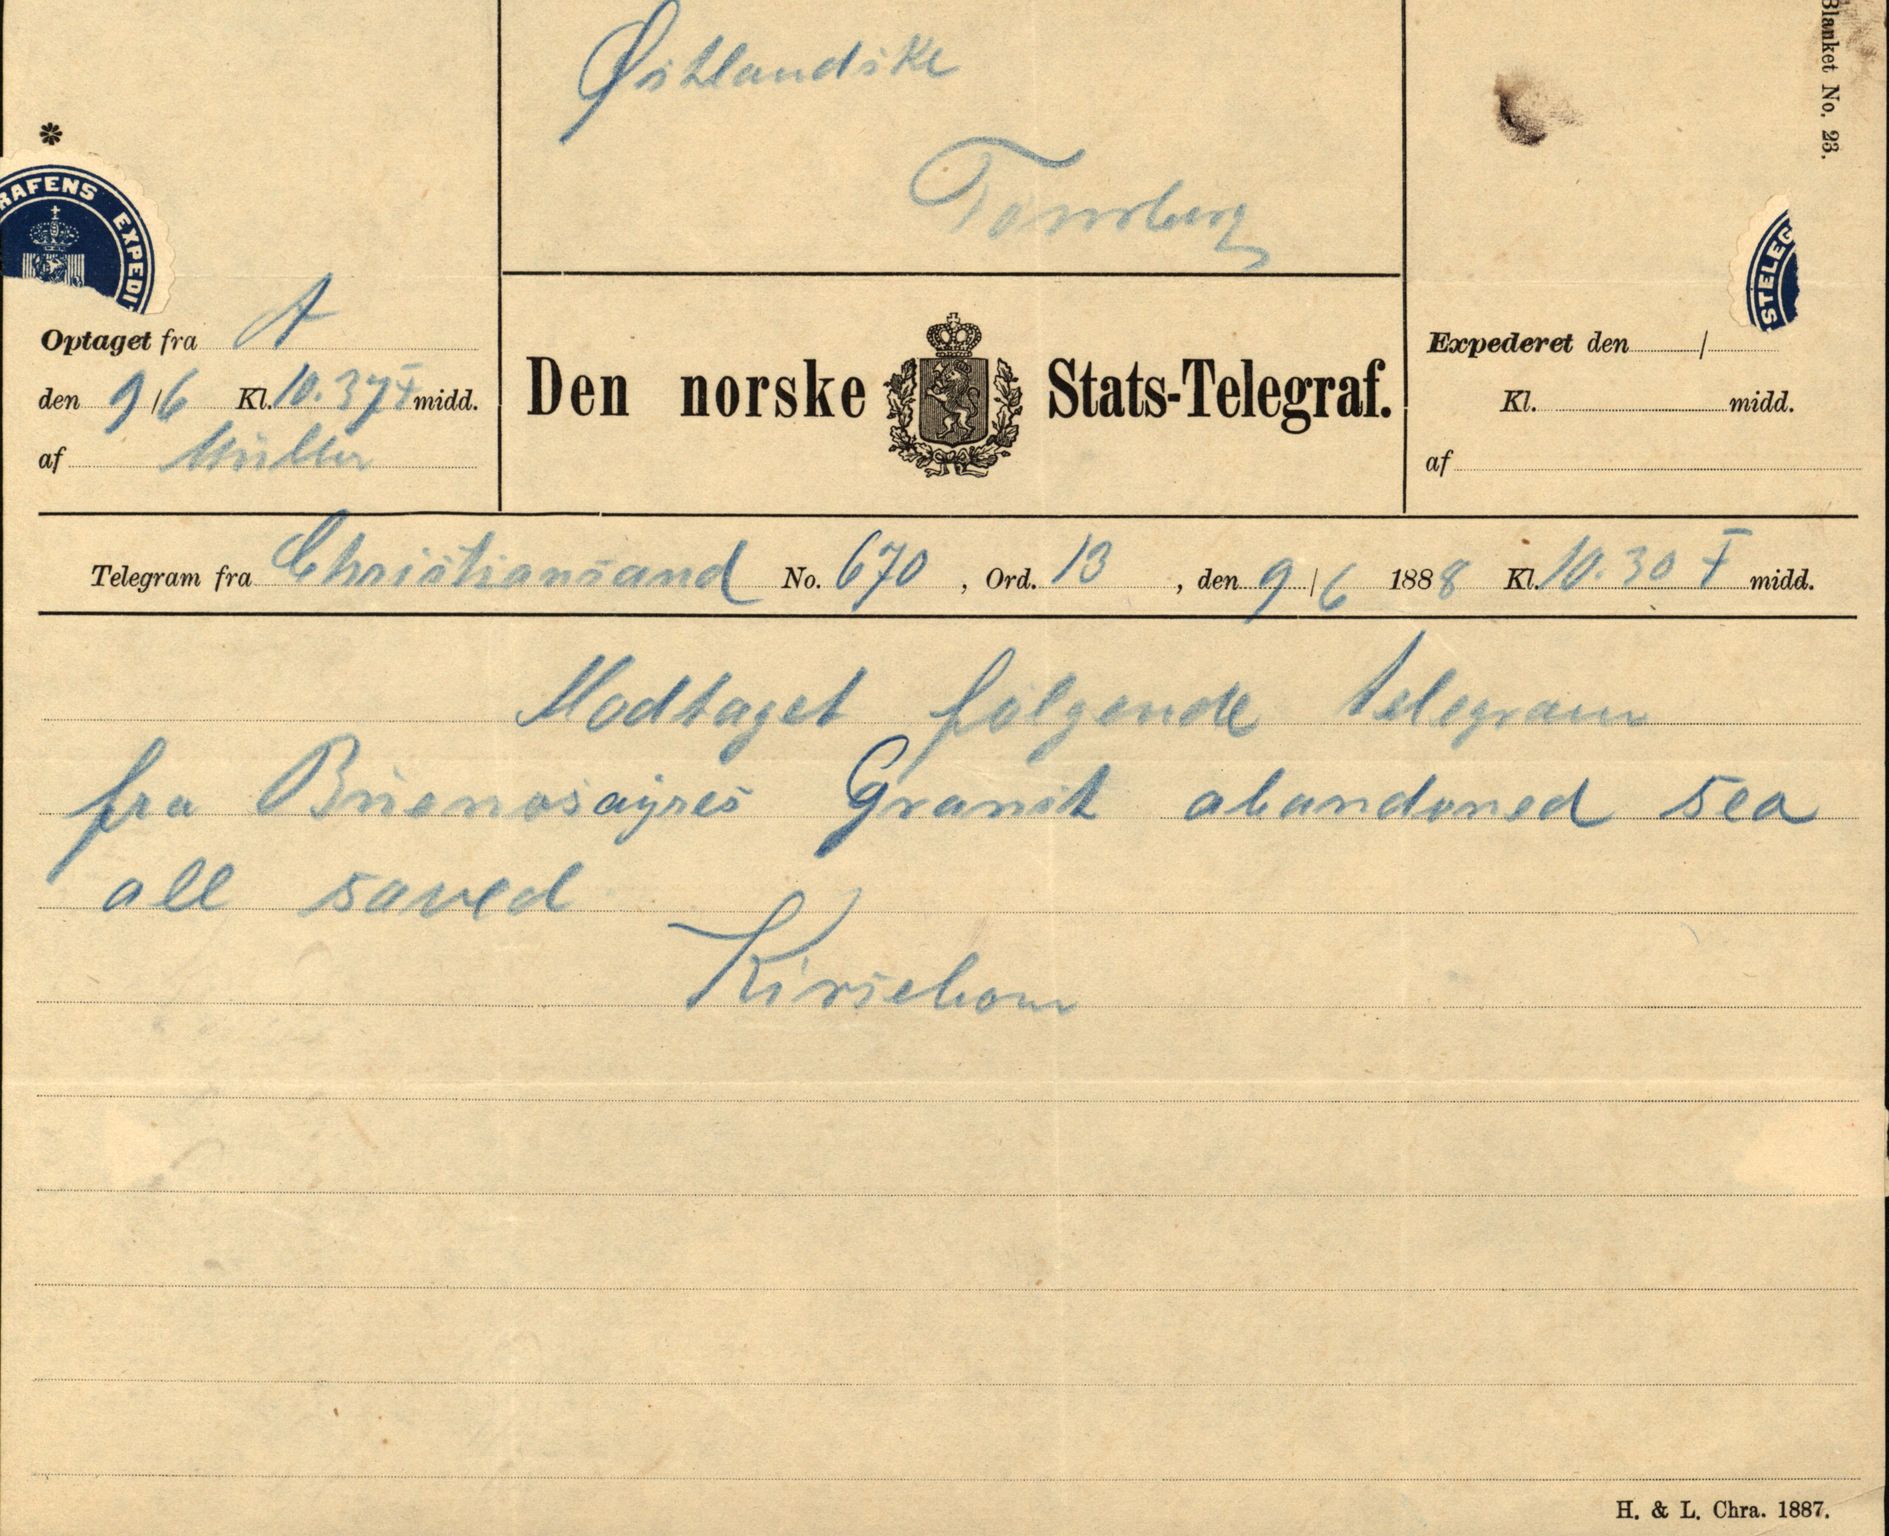 Blanket No. 23.
Østlandske
Tønsberg
*
RAFENS EXPEDI
STELEG
Optaget fra A
den 9/6 Kl. 10.37 F midd.
af Müller
Den norske Stats-Telegraf.
Expederet den /
Kl. midd.
af
Telegram fra Christiansand No. 670, Ord. 13, den 9/6 1888 Kl. 10.30 F midd.
Modtaget følgende telegram
fra Buenosayres Granit abandoned sea
all saved
Kirsebom
H. & L. Chra. 1887.